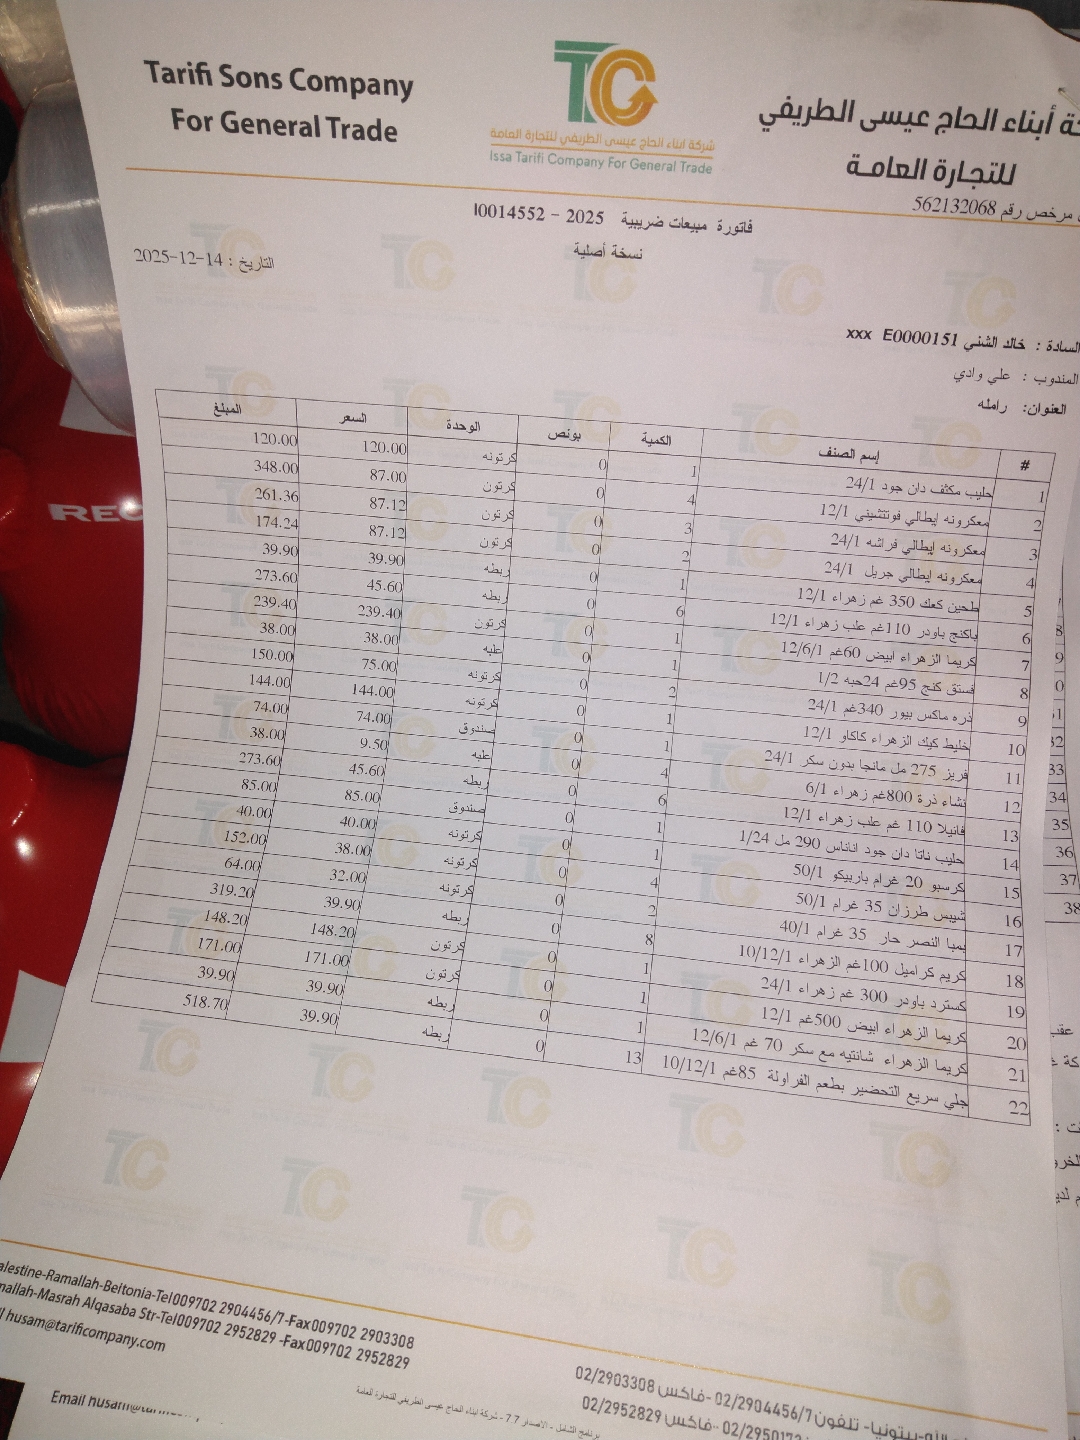 Tarifi Sons Company
For General Trade
TC
شركة ابناء الحاج عيسى الطريفي للتجارة العامة
Issa Tarifi Company For General Trade
أبناء الحاج عيسى الطريفي
للتجارة العامة
مرخص رقم 562132068
فاتورة مبيعات ضريبية 2025 - I0014552
نسخة أصلية
التاريخ : 14-12-2025
السادة : خالد الشني E0000151 xxx
المندوب : علي وادي
العنوان: رامله
# إسم الصنف الكمية بونص الوحدة السعر المبلغ
1 حليب مكثف دان جود 24/1 1 0 كرتونه 120.00 120.00
2 معكرونه إيطالي فوتتشيني 12/1 4 0 كرتون 87.00 348.00
3 معكرونه إيطالي فراشه 24/1 3 0 كرتون 87.12 261.36
4 معكرونه إيطالي جريل 24/1 2 0 كرتون 87.12 174.24
5 طحين كعك 350 غم زهراء 12/1 1 0 ربطه 39.90 39.90
6 باكنج باودر 110غم علب زهراء 12/1 6 0 ربطه 45.60 273.60
7 كريما الزهراء ابيض 60غم 12/6/1 1 0 كرتون 239.40 239.40
8 فستق كنج 95غم 24حبه 1/2 1 0 علبه 38.00 38.00
9 ذره ماكس بيور 340غم 24/1 2 0 كرتونه 75.00 150.00
10 خليط كيك الزهراء كاكاو 12/1 1 0 كرتونه 144.00 144.00
11 فريز 275 مل مانجا بدون سكر 24/1 1 0 صندوق 74.00 74.00
12 نشاء ذرة 800غم زهراء 6/1 4 0 علبه 9.50 38.00
13 فانيلا 110 غم علب زهراء 12/1 6 0 ربطه 45.60 273.60
14 حليب ناتا دان جود اناناس 290 مل 1/24 1 0 صندوق 85.00 85.00
15 كرسبو 20 غرام باربيكو 50/1 1 0 كرتونه 40.00 40.00
16 شيبس طرزان 35 غرام 50/1 4 0 كرتونه 38.00 152.00
17 بمبا النصر حار 35 غرام 40/1 2 0 كرتونه 32.00 64.00
18 كريم كراميل 100غم الزهراء 10/12/1 8 0 ربطه 39.90 319.20
19 كسترد باودر 300 غم زهراء 24/1 1 0 كرتون 148.20 148.20
20 كريما الزهراء ابيض 500غم 12/1 1 0 كرتون 171.00 171.00
21 كريما الزهراء شانتيه مع سكر 70 غم 12/6/1 1 0 ربطه 39.90 39.90
22 جلي سريع التحضير بطعم الفراولة 85غم 10/12/1 13 0 ربطه 39.90 518.70
33
34
35
36
37
38
-Ramallah-Beitonia-Tel009702 2904456/7-Fax009702 2903308
-Masrah Alqasaba Str-Tel009702 2952829 -Fax009702 2952829
husam@tarificompany.com
-بيتونيا- تلفون 02/2904456/7 -فاكس 02/2903308
-فاكس 02/2952829
Email
برنامج الشامل - الاصدار 7.7 - شركة ابناء الحاج عيسى الطريفي للتجارة العامة
REC